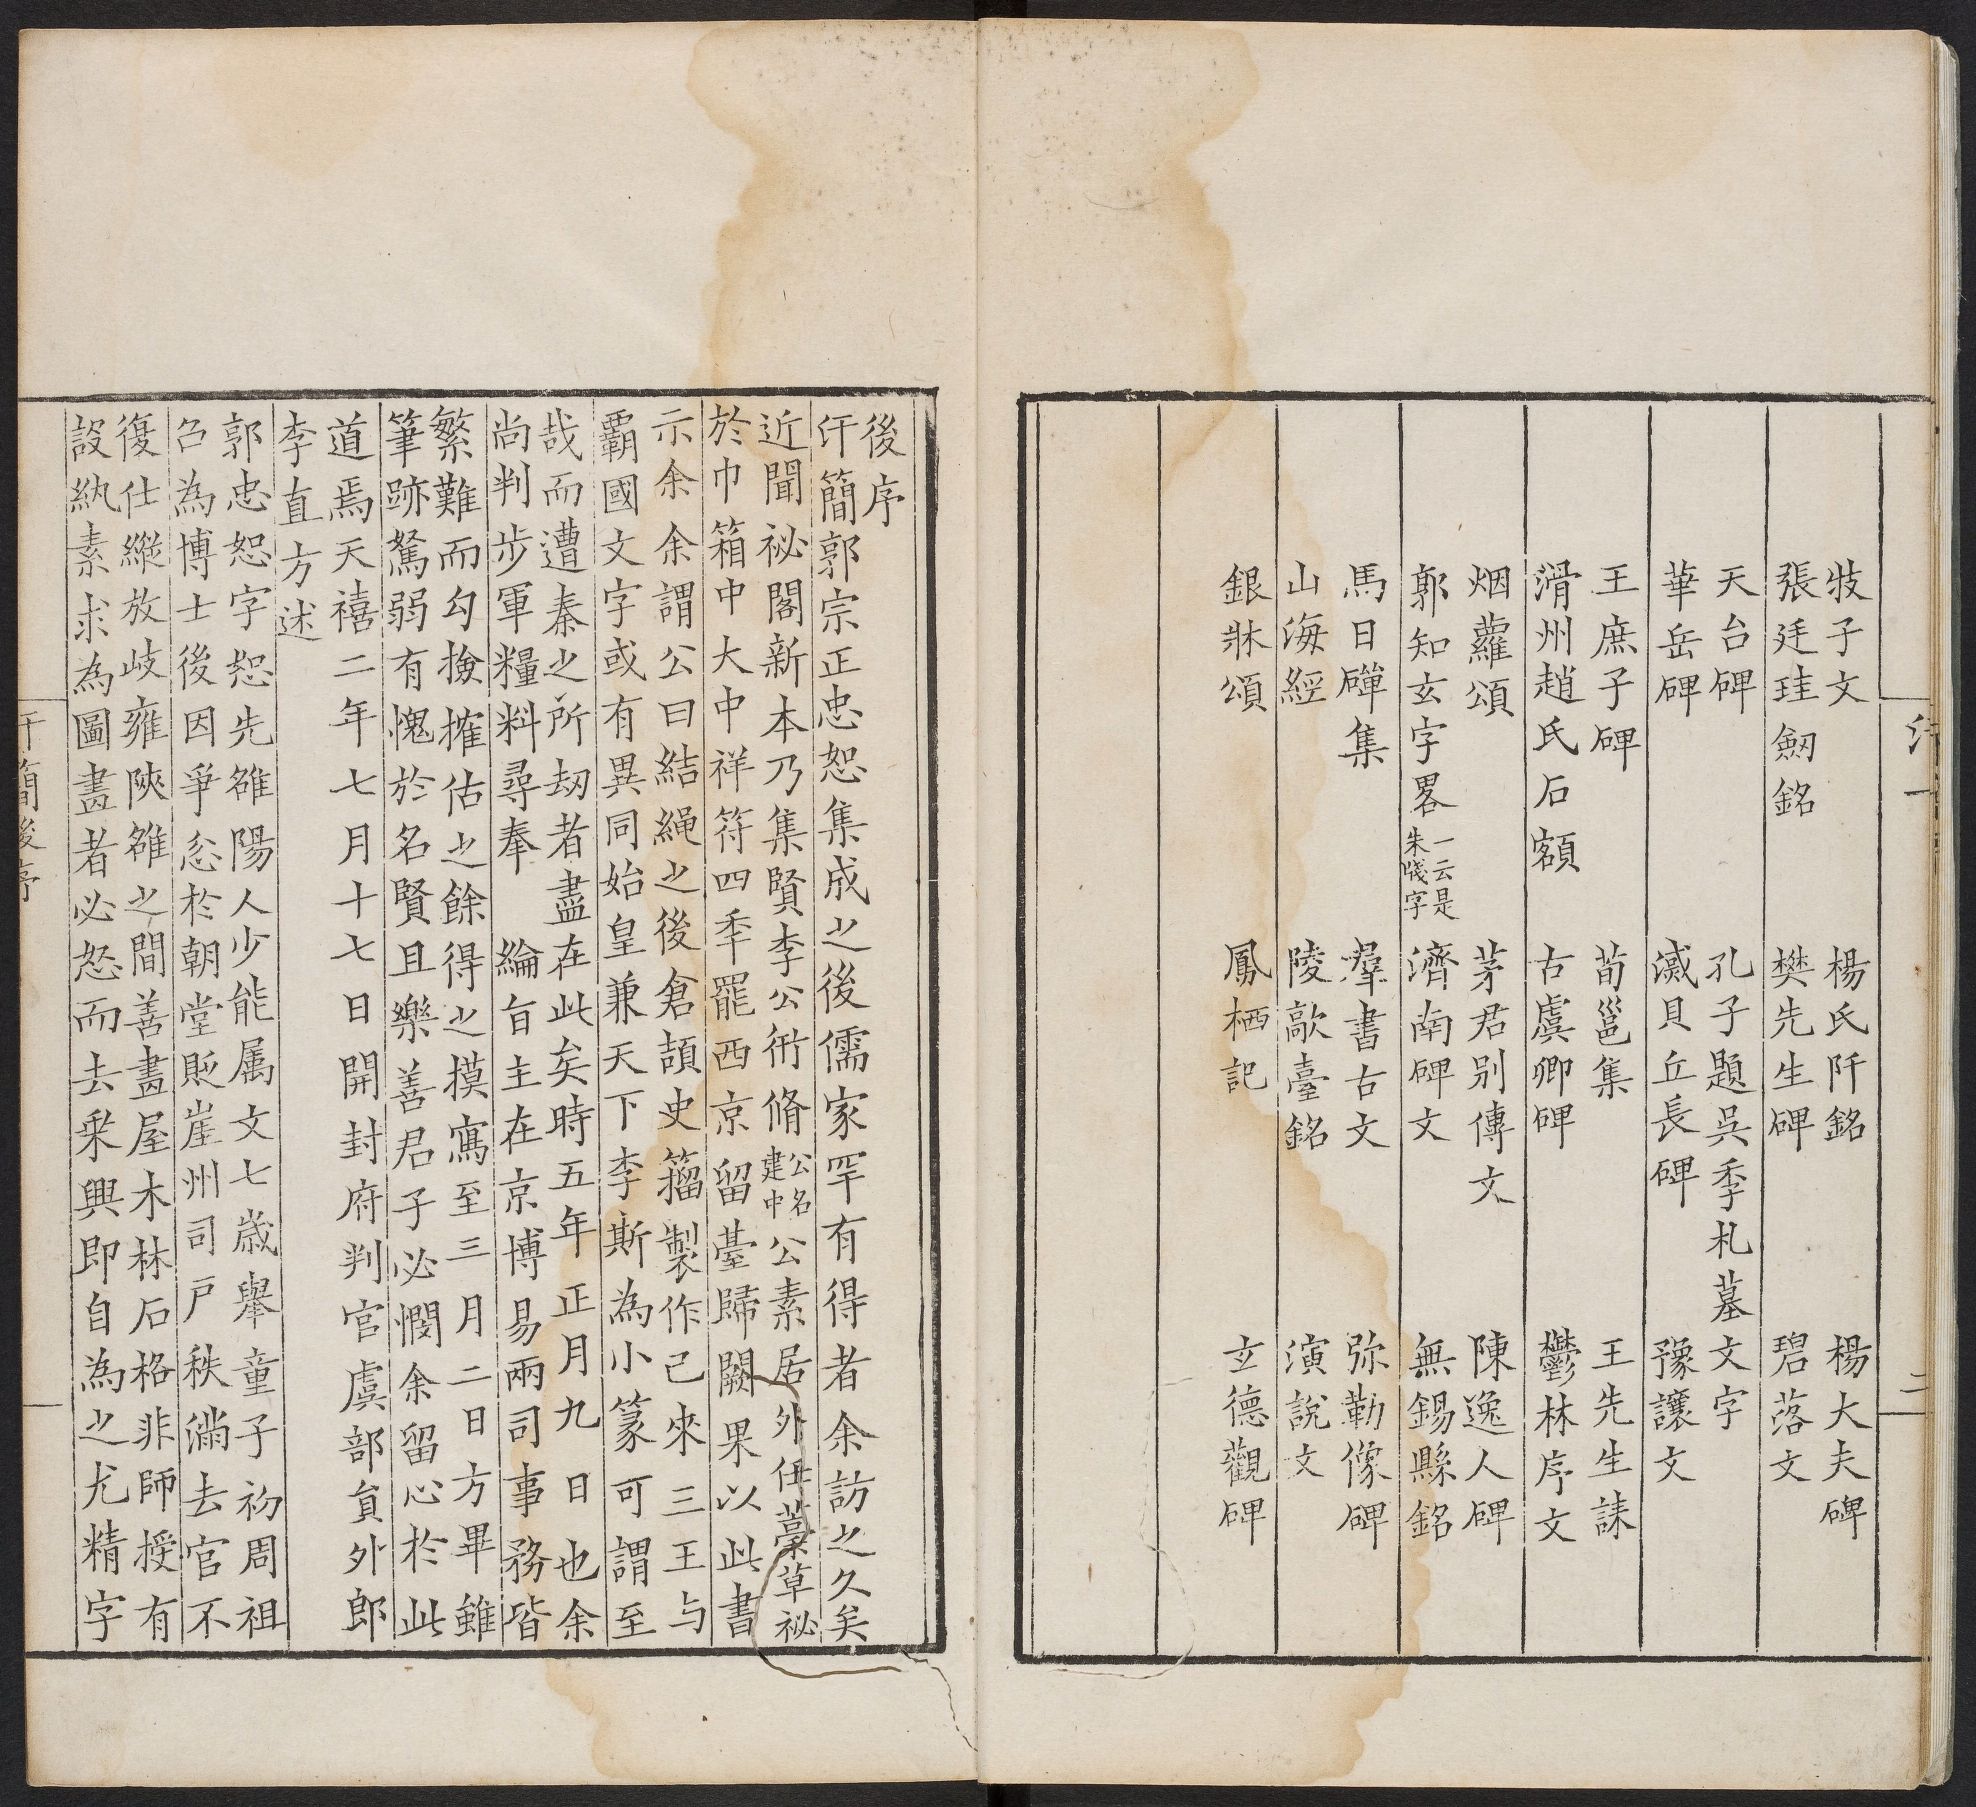 牧子文 楊氏阡銘 楊大夫碑
張廷珪劒銘 樊先生碑 碧落文
天台碑 孔子題吳季札墓文字
華岳碑 滅貝丘長碑 豫讓文
王庶子碑 荀邕集 王先生誄
滑州趙氏石額 古虞卿碑 鬱林序文
烟蘿頌 茅君別傳文 陳逸人碑
郭知玄字畧一云是朱牋字 濟南碑文 無錫縣銘
馬日磾集 羣書古文 弥勒像碑
山海經 陵歊臺銘 演說文
銀牀頌 鳳栖記 玄德觀碑
二
後序
汗簡郭宗正忠恕集成之後儒家罕有得者余訪之久矣
近聞祕閣新本乃集賢李公衎脩公名建中公素居外任藁草祕
於巾箱中大中祥符四秊罷西京留䑓歸闕果以此書
示余余謂公曰結繩之後倉頡史籀製作已來三王与
覇國文字或有異同始皇兼天下李斯為小篆可謂至
哉而遭秦之所刼者盡在此矣時五年正月九日也余
尚判步軍糧料尋奉 綸旨主在京博易兩司事務皆
繁難而勾撿搉估之餘得之摸寫至三月二日方畢雖
筆跡駑弱有愧於名賢且樂善君子必憫余留心於此
道焉天禧二年七月十七日開封府判官虞部貟外郎
李直方述
郭忠恕字恕先雒陽人少能属文七歲舉童子初周祖
召為博士後因爭忿於朝堂貶崖州司戶秩滿去官不
復仕縱放岐雍陝雒之間善畫屋木林石格非師授有
設紈素求為圖畫者必怒而去乘興即自為之尤精字
汗簡後序